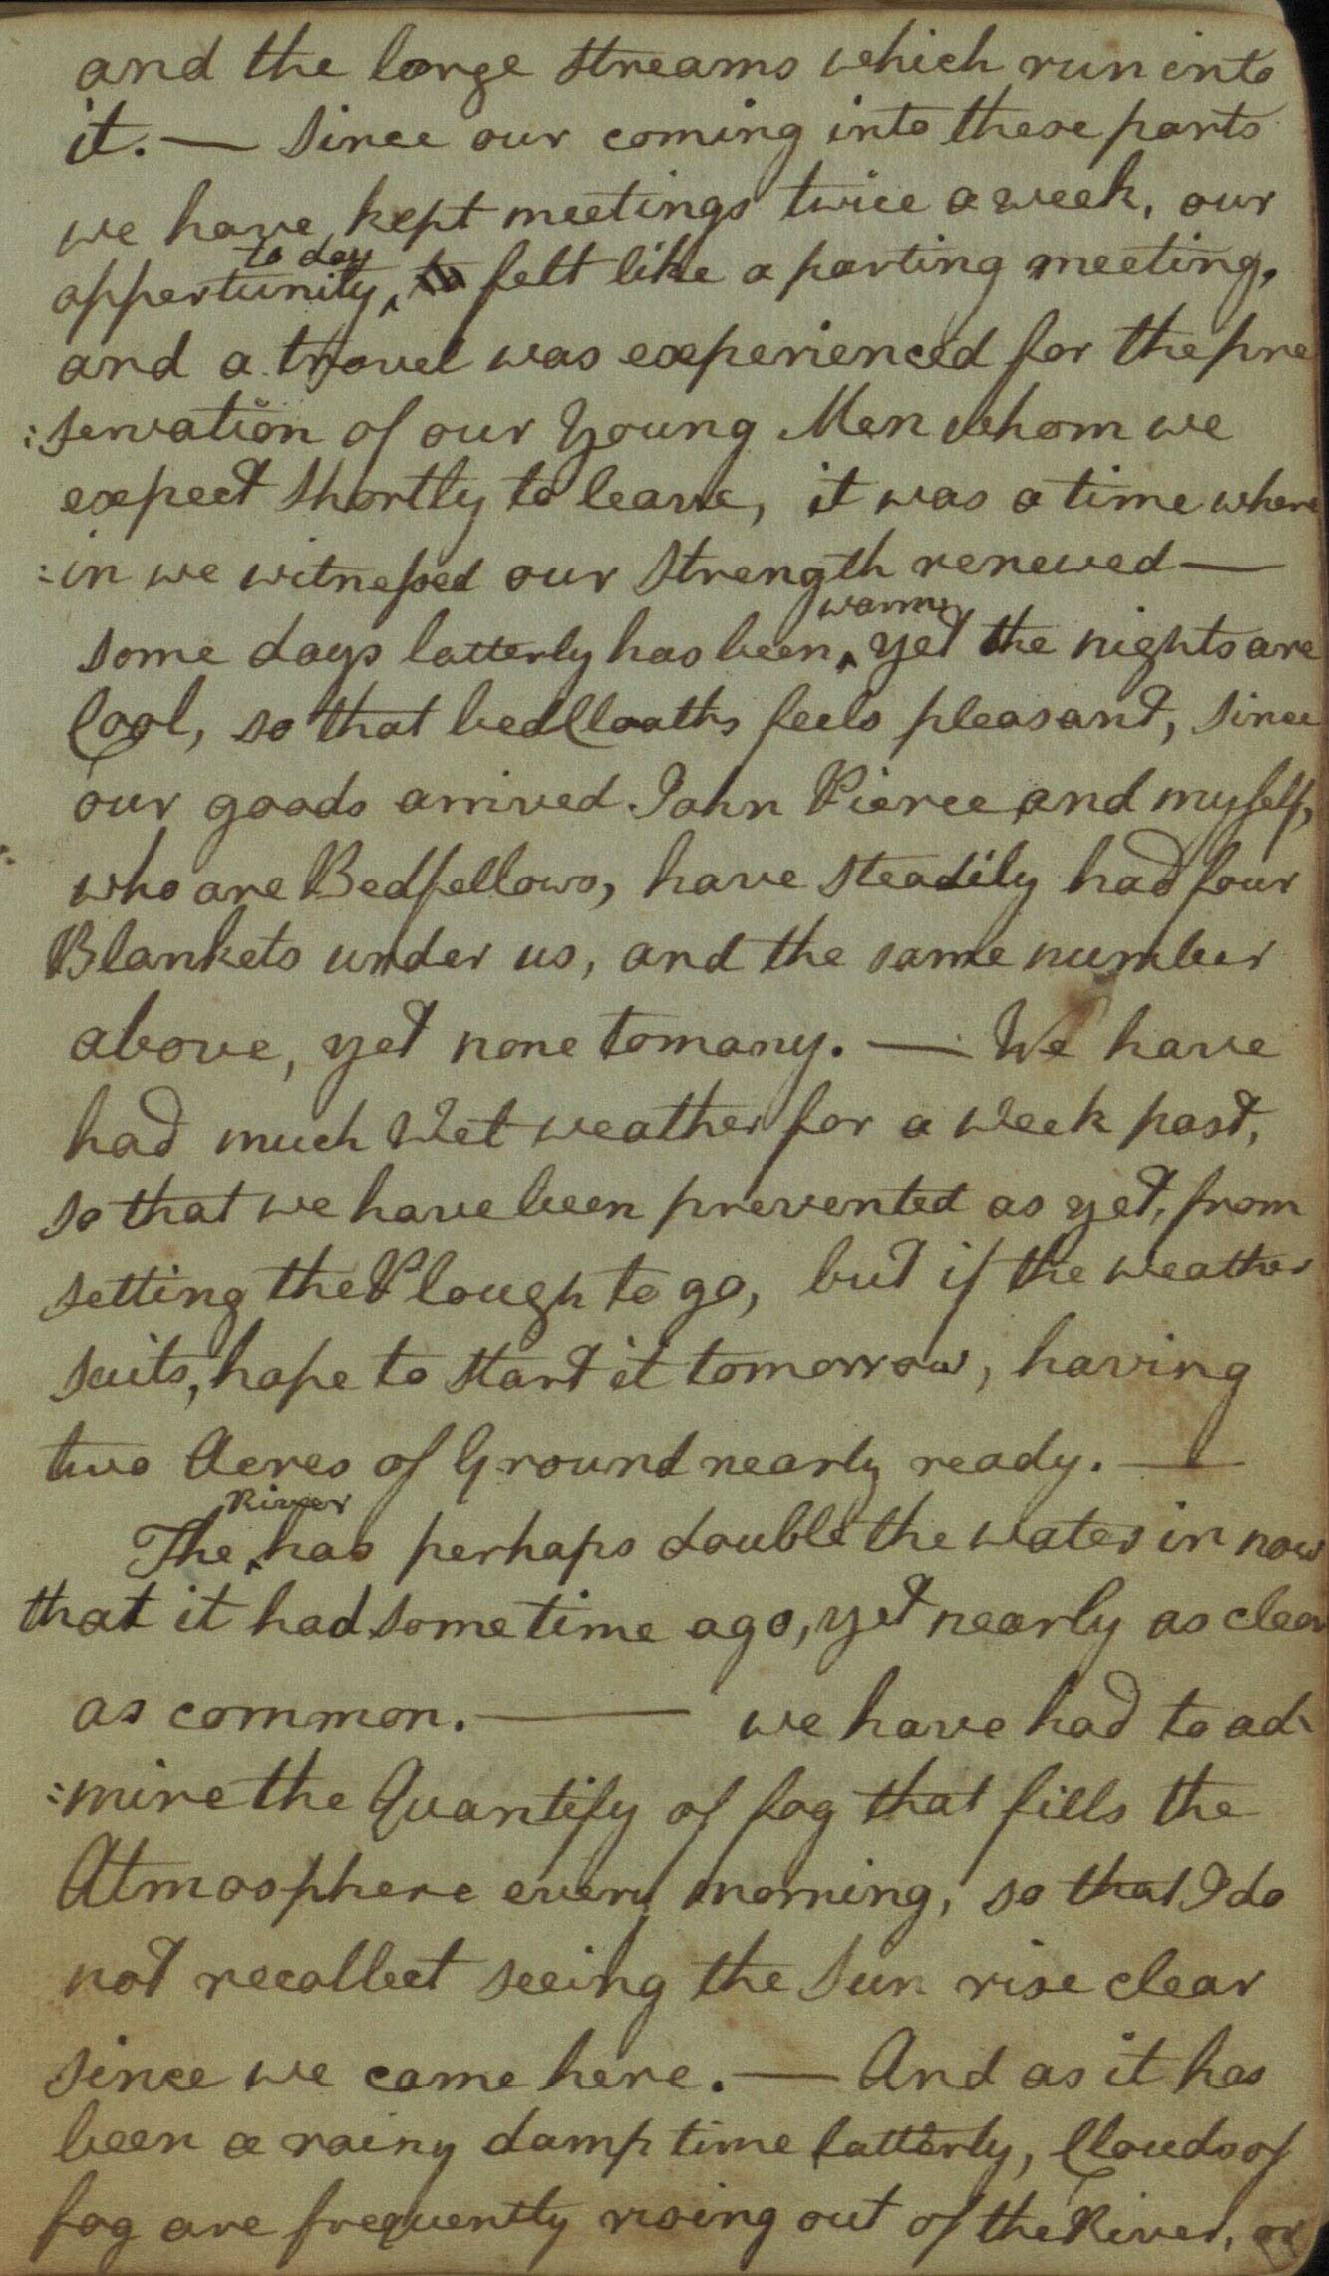 and the large streams which run into
it. — Since our coming into these parts
we have kept meetings twice a week, our
to day
oppertunity ‸ to felt like a parting meeting,
and a travel was experienced for the pre
:servation of our Young Men whom we
expect Shortly to leave, it was a time where
:in we witnessed our Strength renewed —
warm
some days latterly has been ‸ yet the nights are
Cool, so that bed Cloaths feels pleasant, Since
our goods arrived John Pierce and myself,
who are Bedfellows, have steadily had four
Blankets under us, and the same number
above, yet none to many. — We have
had much Wet weather for a Week past,
so that we have been prevented as yet, from
setting the Plough to go, but if the weather
suits, hope to start it tomorrow, having
two Acres of Ground nearly ready. —
River
The ‸ has perhaps double the water in now
that it had some time ago, yet nearly as clear
as common. — we have had to ad-
:mire the Quantity of fog that fills the
Atmosphere every morning, so that I do
not recollect seeing the Sun rise clear
since we came here. — And as it has
been a rainy damp time latterly, Clouds of
fog are frequently rising out of the River, or